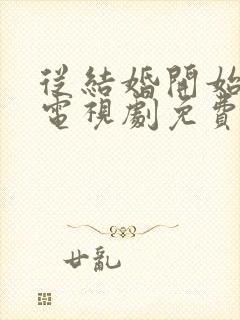 從結婚開始
電視劇免費
廿亂